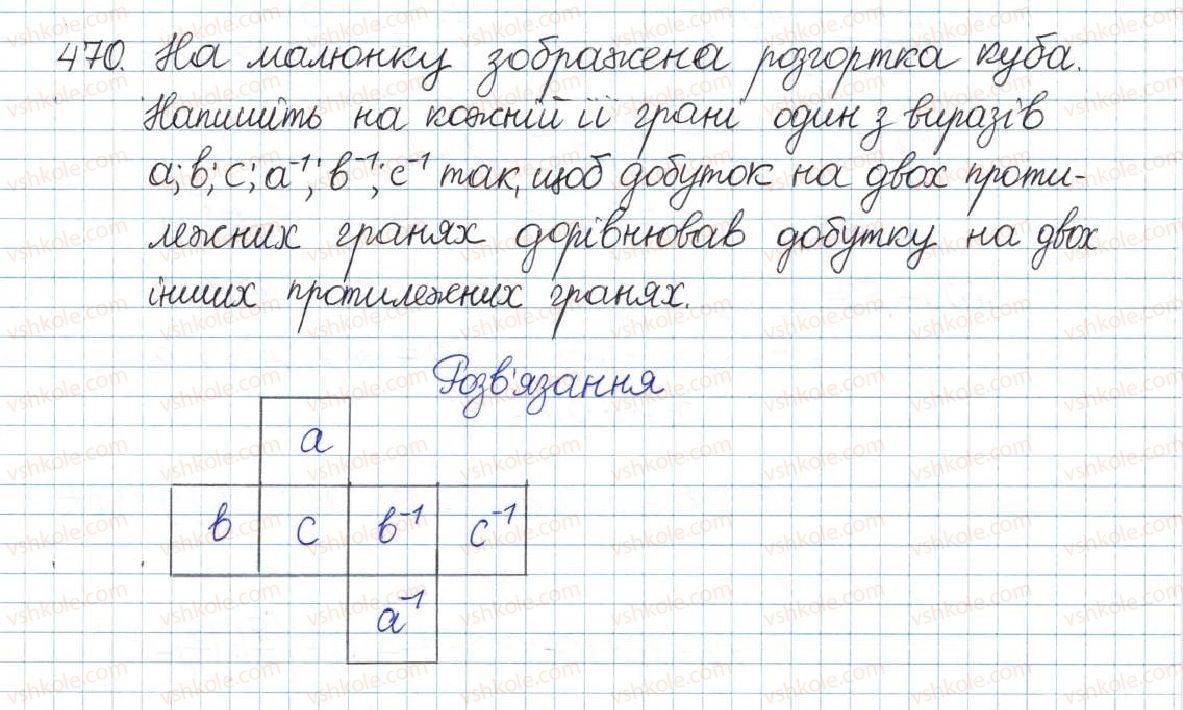 470. На малюнку зображена розгортка куба.
Напишіть на кожній її грані один з виразів
a; b; c; a⁻¹; b⁻¹; c⁻¹ так, щоб добуток на двох проти-
лежних гранях дорівнював добутку на двох
інших протилежних гранях.
Розв'язання
a
b c b⁻¹ c⁻¹
a⁻¹
vshkole.com